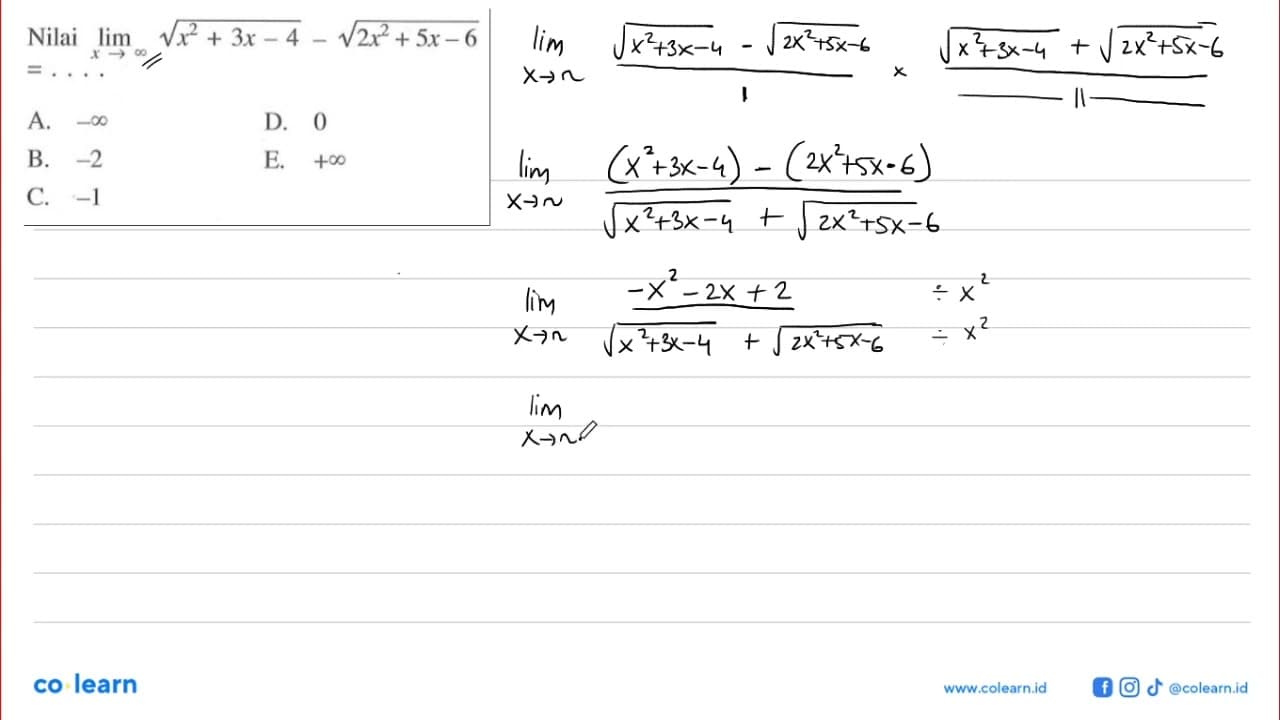 Nilai lim x → ∞ √(x² + 3x – 4) – √(2x² + 5x – 6)
= . . . .
A. –∞
D. 0
B. –2
E. +∞
C. –1
lim x→~ (√(x²+3x-4) - √(2x²+5x-6)) / 1 × (√(x²+3x-4) + √(2x²+5x-6)) / — 11 —
lim x→~ ((x²+3x-4) - (2x²+5x-6)) / (√(x²+3x-4) + √(2x²+5x-6))
lim x→~ (-x²-2x+2) / (√(x²+3x-4) + √(2x²+5x-6)) ÷ x² ÷ x²
lim x→~
co learn
www.colearn.id
@colearn.id